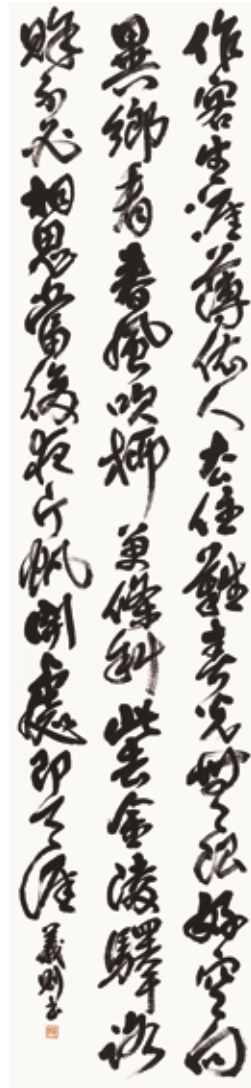 作客生涯薄依人去住難春光無限好空向
異鄉看春風吹柳萬條斜此去金陵驛路
賖不必相思當後夜片帆開處即天涯 義則書